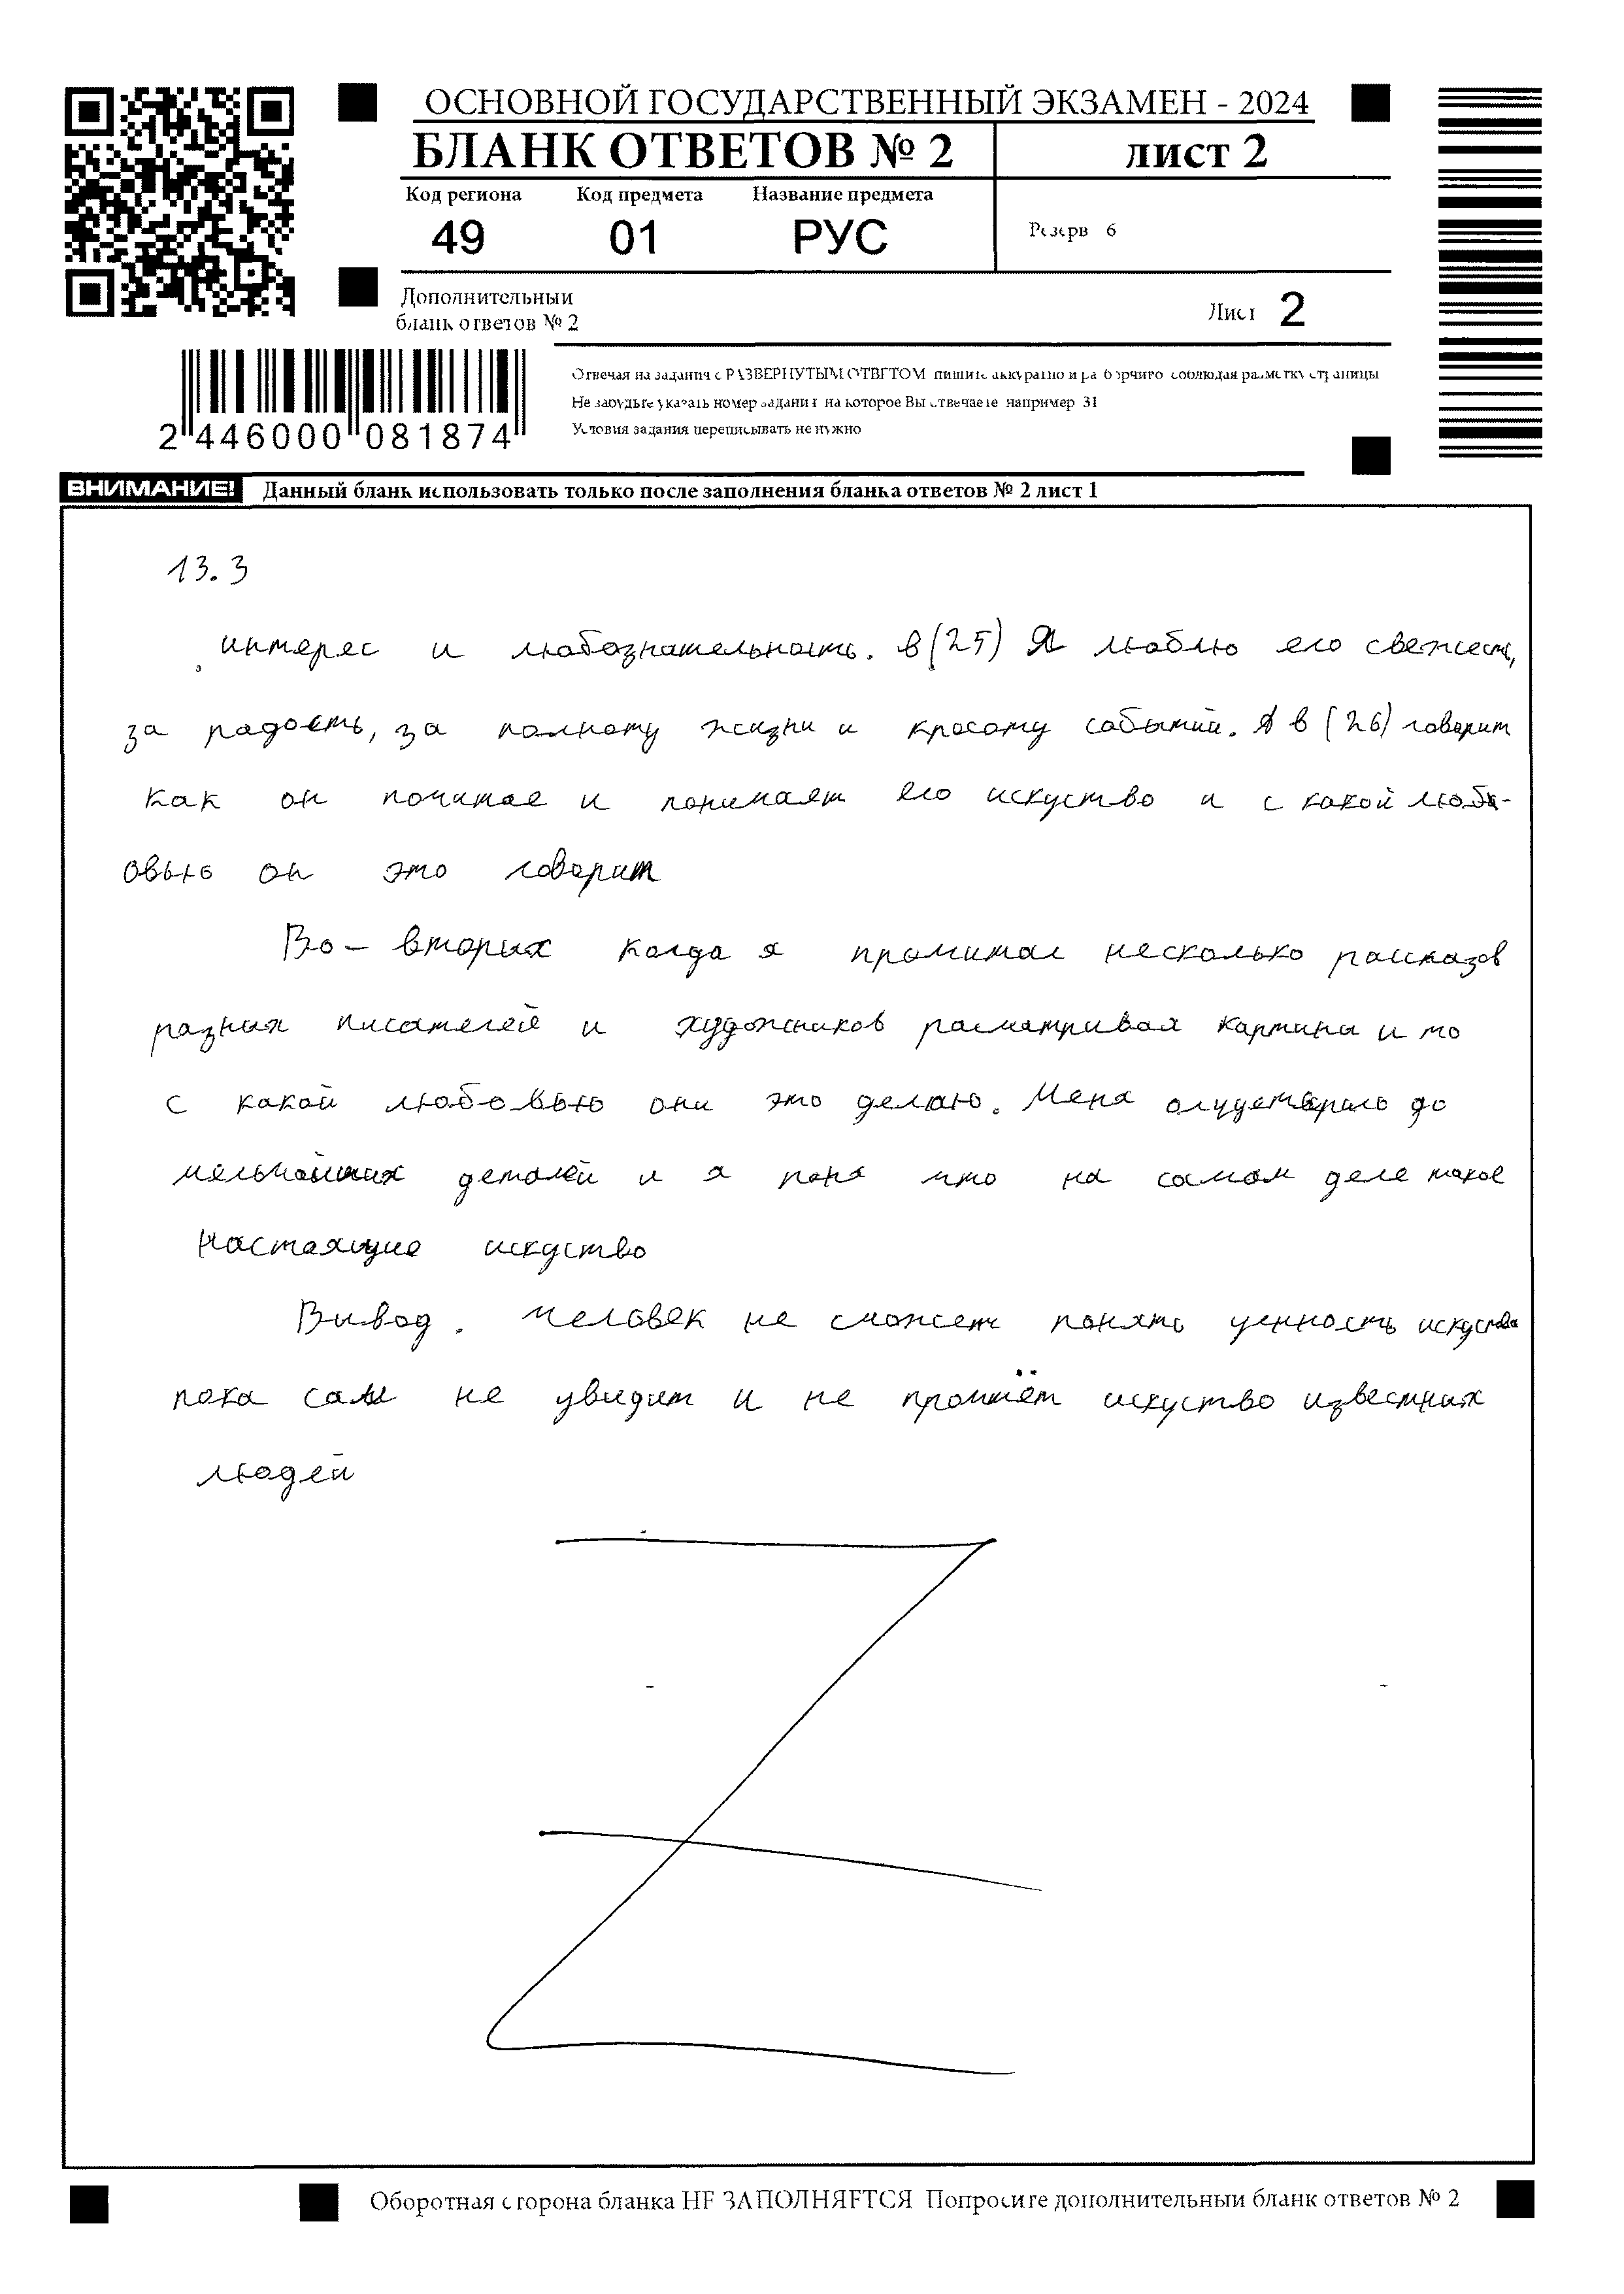 ОСНОВНОЙ ГОСУДАРСТВЕННЫЙ ЭКЗАМЕН - 2024
БЛАНК ОТВЕТОВ № 2
ЛИСТ 2
Код региона Код предмета Название предмета
49 01 РУС
Резерв 6
Дополнительный
бланк ответов № 2
Лист 2
Отвечая на задания с РАЗВЕРНУТЫМ ОТВЕТОМ пишите аккуратно и разборчиво соблюдая разметку страницы
Не забудьте указать номер задания на которое Вы отвечаете например 31
Условия задания переписывать не нужно
2 446000 081874
ВНИМАНИЕ! Данный бланк использовать только после заполнения бланка ответов № 2 лист 1
13.3
интерес и любознательность. в (25) Я люблю его свежесть,
за радость, за полноту жизни и красоту событий. А в (26) говорит
как он почитае и понимает его искуство и с какой любо-
овью он это говорит
Во-вторых когда я прочитал несколько рассказов
разних писателей и художников расматривая картины и то
с какой любовью они это делаю. Меня до
мельчайших деталей и я поня что на самом деле такое
настаящие искуство
Вивод. человек не сможет понять ценность искуства
пока сам не увидит и не прочтёт искуство известних
людей
Оборотная сторона бланка НЕ ЗАПОЛНЯЕТСЯ Попросите дополнительный бланк ответов № 2